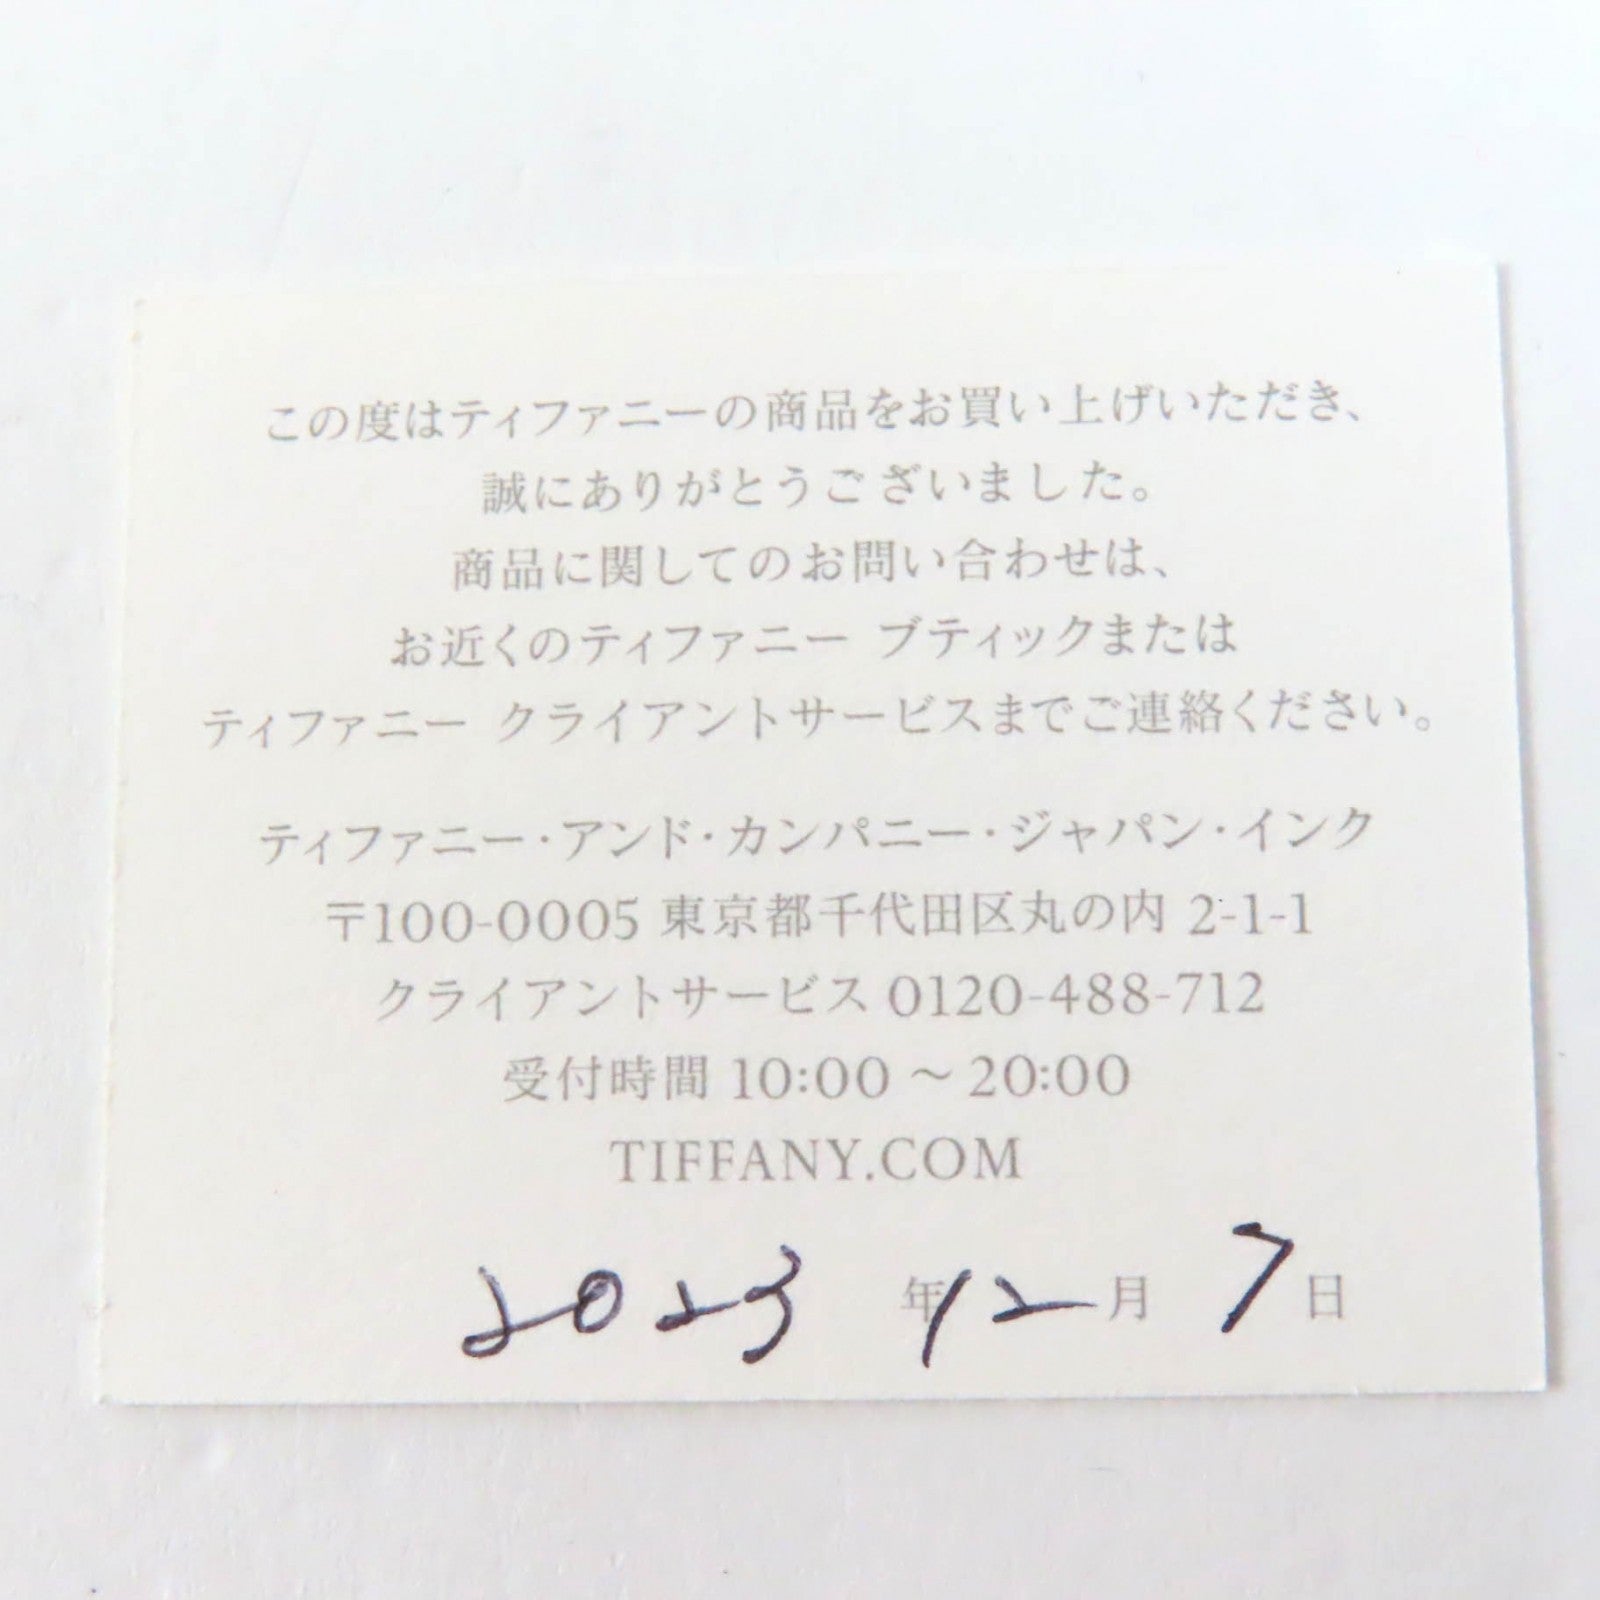 この度はティファニーの商品をお買い上げいただき、
誠にありがとうございました。
商品に関してのお問い合わせは、
お近くのティファニー ブティックまたは
ティファニー クライアントサービスまでご連絡ください。
ティファニー・アンド・カンパニー・ジャパン・インク
〒100-0005 東京都千代田区丸の内 2-1-1
クライアントサービス 0120-488-712
受付時間 10:00 〜 20:00
TIFFANY.COM
2023 年 12 月 7 日